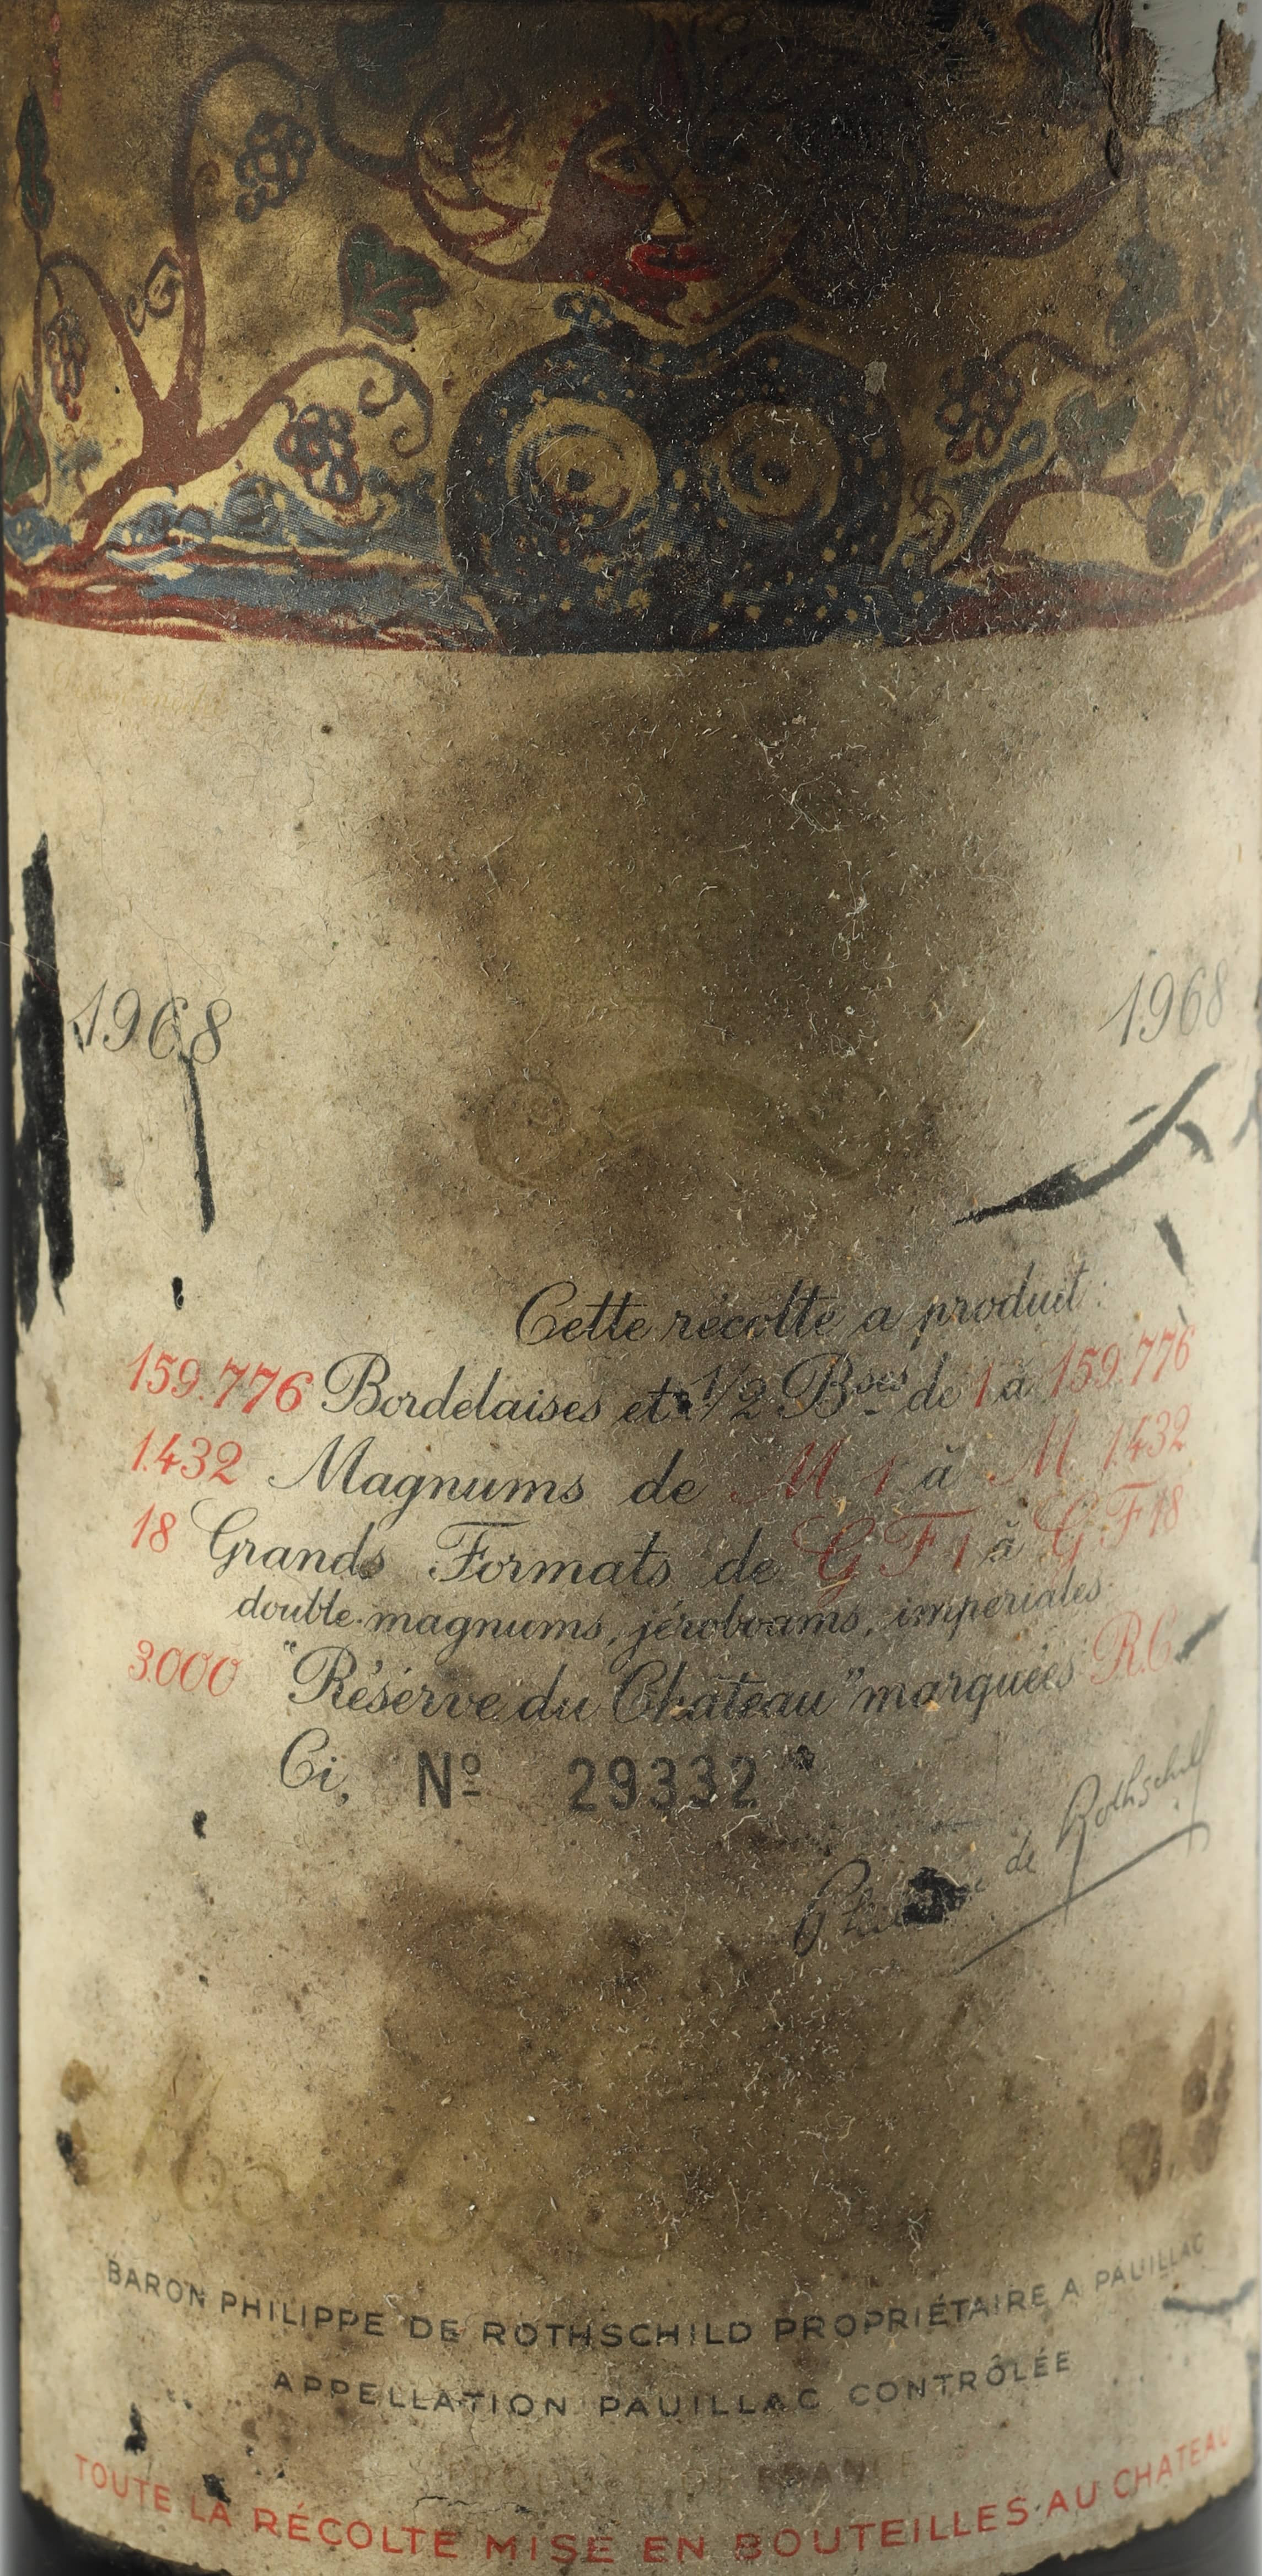 1968 1968
Cette récolte a produit:
159.776 Bordelaises et 1/2 Bses de 1 à 159.776
1.432 Magnums de M 1 à M 1.432
18 Grands Formats de G F 1 à G F 18
double-magnums, jéroboams, impériales.
3.000 "Réserve du Château" marquées R.C.
Ci, Nº 29332
Philippe de Rothschild
Mouton
BARON PHILIPPE DE ROTHSCHILD PROPRIÉTAIRE A PAUILLAC
APPELLATION PAUILLAC CONTRÔLÉE
PRODUCE OF FRANCE
TOUTE LA RÉCOLTE MISE EN BOUTEILLES AU CHATEAU